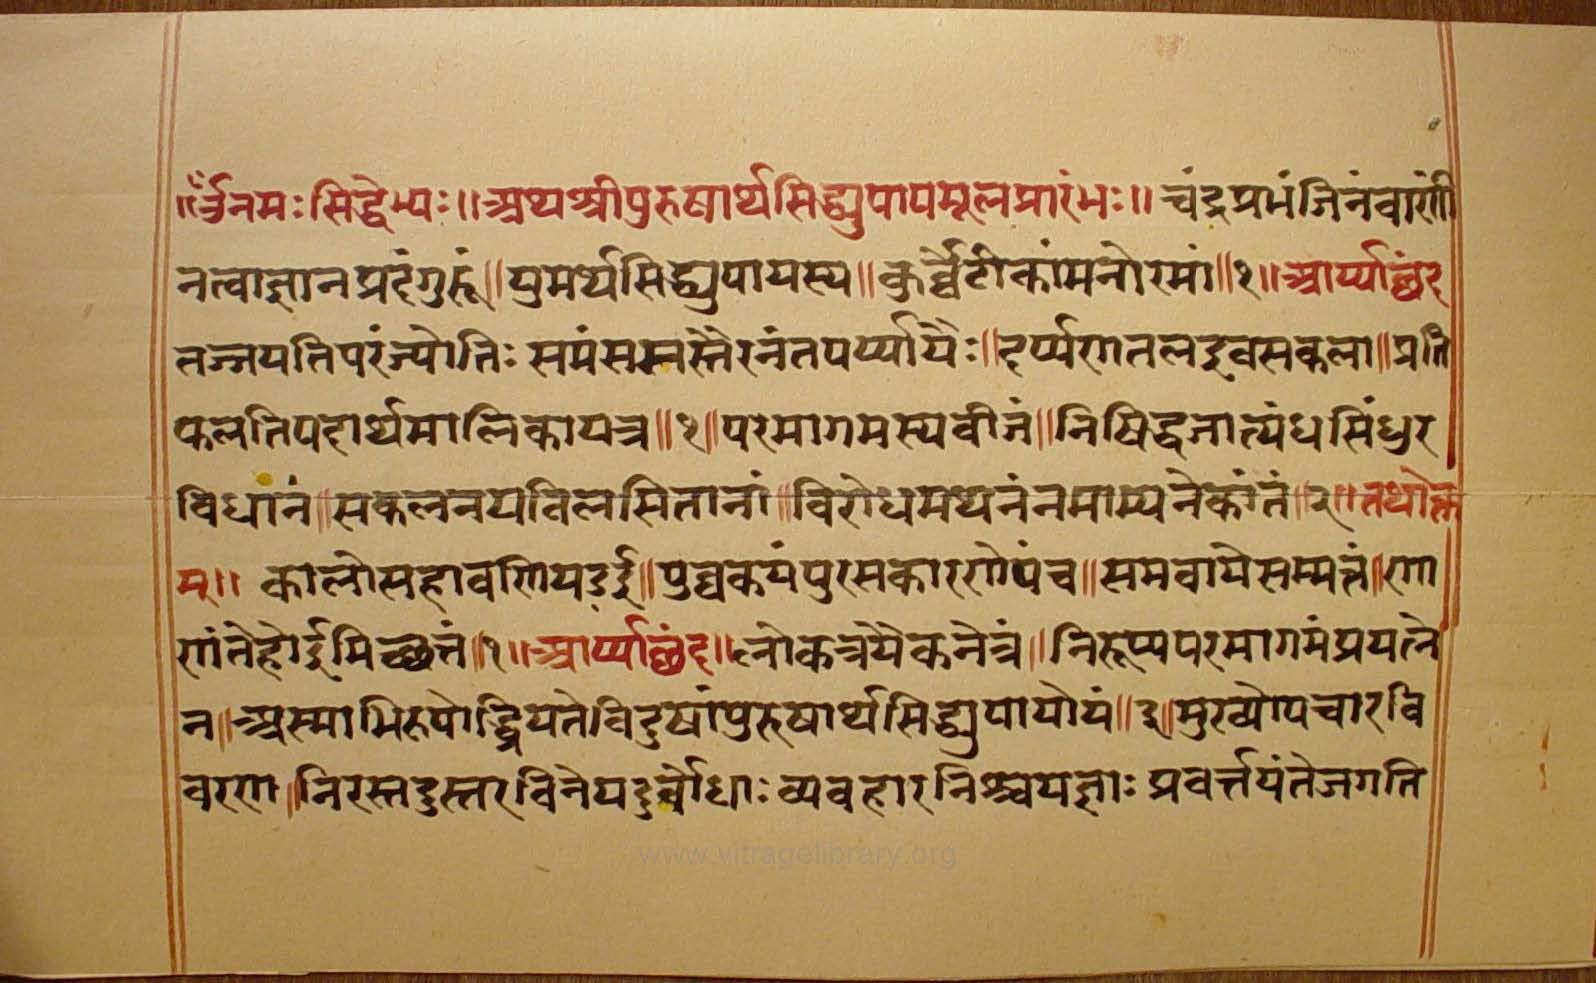 ॥ॐनमःसिद्धेभ्यः॥अथश्रीपुरुषार्थसिद्ध्युपायमूलप्रारंभः॥ चंद्रप्रभंजिनंवाणीं
नत्वाज्ञानप्रदंगुरूं॥पुमर्थसिद्ध्युपायस्य॥कुर्व्वेटीकांमनोरमां॥१॥आर्य्याछंद
तज्जयतिपरंज्योतिः समंसमस्तैरनंतपर्य्यायैः॥दर्प्पणतलइवसकला॥प्रति
फलतिपदार्थमालिकायत्र॥१॥परमागमस्यबीजं॥निषिद्धजात्यंधसिंधुर
विधानं॥सकलनयविलसितानां॥विरोधमथनंनमाम्यनेकांतं॥२॥तथोक्त
म्॥ कालोसहावणियइई॥पुव्वकयंपुरसकारणेपंच॥समवायेसम्मत्तं॥एग
एगंतेहोईमिच्छत्तं॥१॥आर्य्याछंद॥लोकत्रयैकनेत्रं॥निरूप्यपरमागमंप्रयत्ने
न॥अस्माभिरुपोद्ध्रियतेविदुषांपुरुषार्थसिद्ध्युपायोयं॥३॥मुख्योपचारवि
वरण॥निरस्तदुस्तरविनेयदुर्बोधाः व्यवहारनिश्चयज्ञाः प्रवर्त्तयंतेजगति
www.vitragelibrary.org